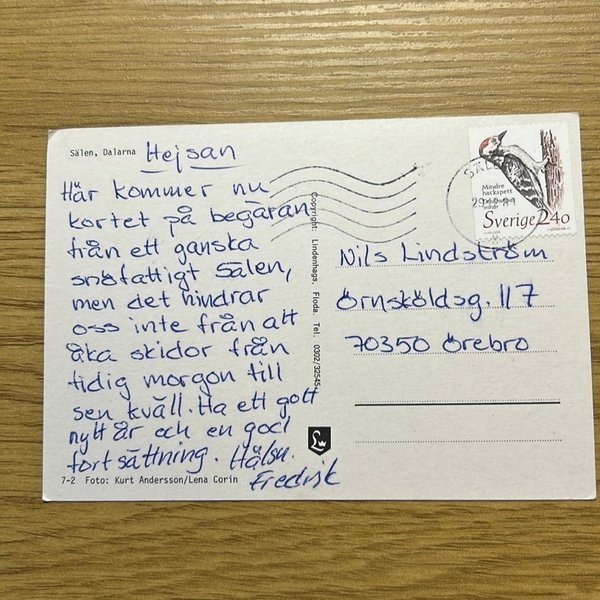 Sälen, Dalarna
Hejsan
Här kommer nu
kortet på begäran
från ett ganska
snöfattigt Sälen,
men det hindrar
oss inte från att
åka skidor från
tidig morgon till
sen kväll. Ha ett gott
nytt år och en god
fortsättning. Hälsn.
Fredrik
7-2 Foto: Kurt Andersson/Lena Corin
Copyright: Lindenhags, Floda. Tel. 0302/32545
Mindre
hackspett
Sverige 2.40
Nils Lindström
Örnsköldsg. 117
70350 Örebro